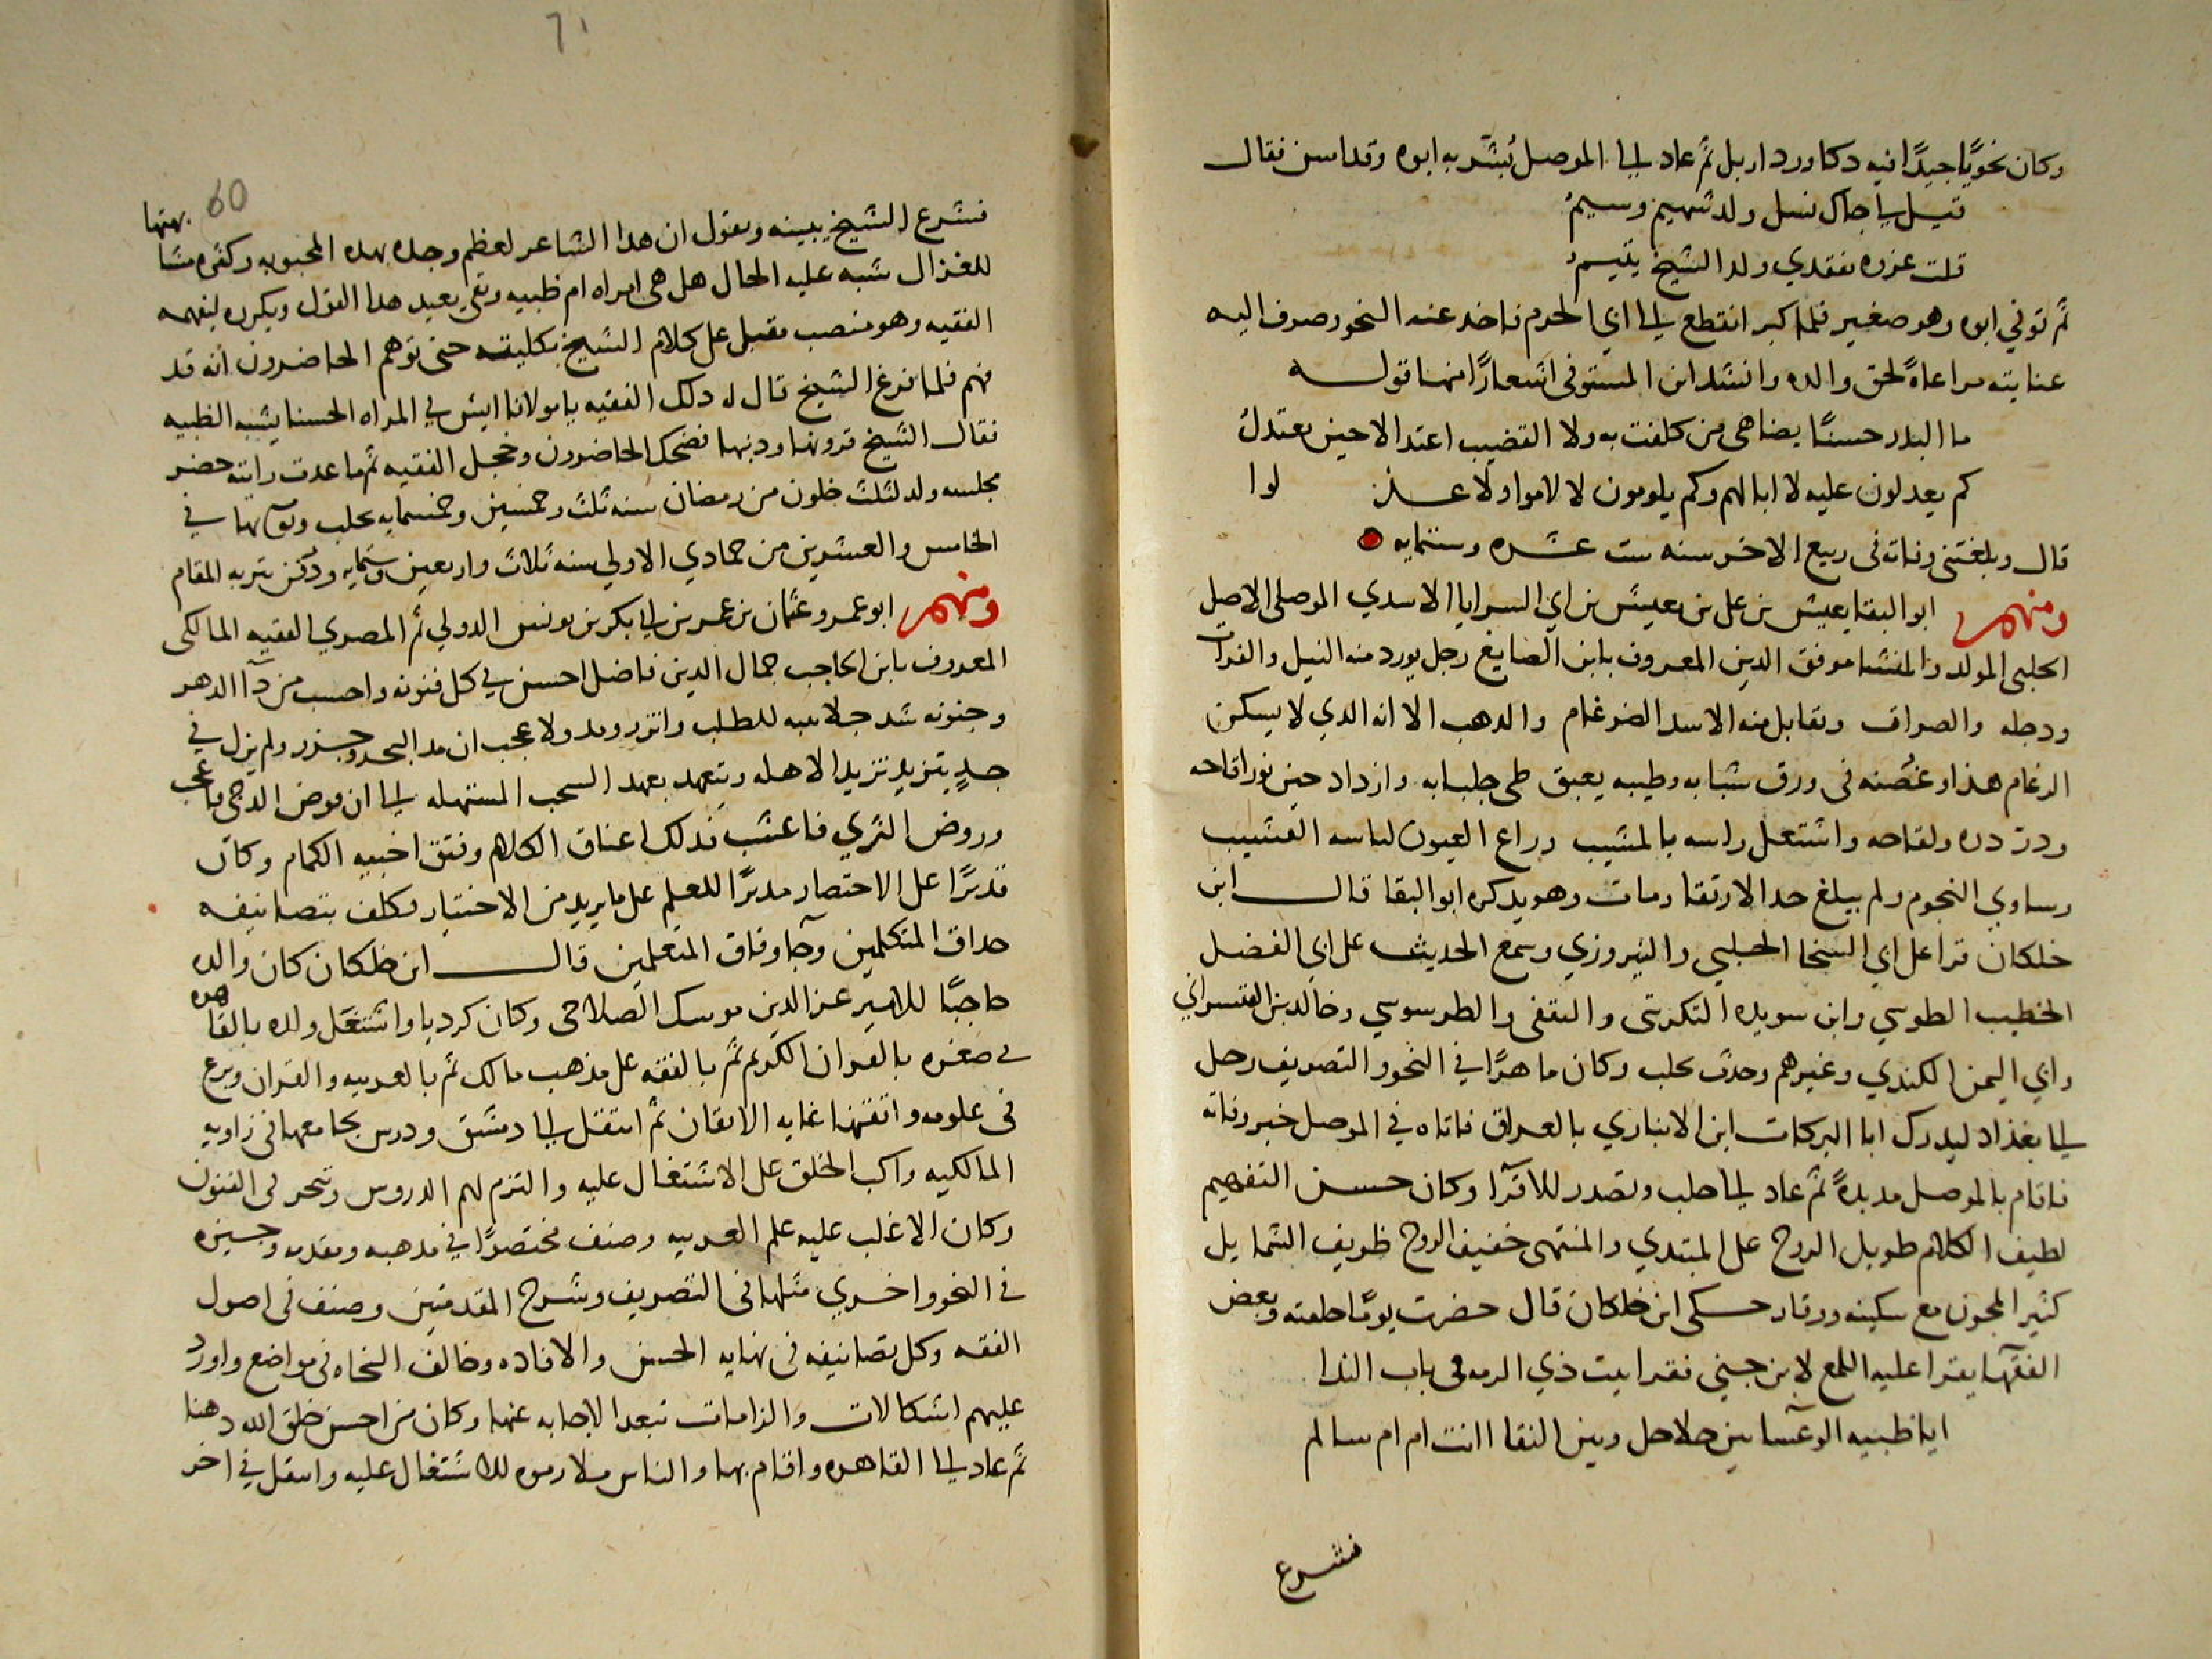 وكان نحويًا جيدًا نبيه دكا ورد اربل ثم عاد الى الموصل يُبشر به ابوه وقد اسن فقال
قيل لي جاك نسل ولد شهيم وسيمُ
قلت عزوه بفقدي ولد الشيخ يتيمُ
ثم توفي ابوه وهو صغير فلما كبر انقطع الى ابي الحرم فاخذ عنه النحو وصرف اليه
عنايته مراعاةً لحق والده وانشد ابن المستوفي اشعارًا منها قوله
ما البدر حسنًا يضاهى من كلفت به ولا القضيب اعتدالا حين يعتدلُ
كم يعدلون عليه لا ابا لهم وكم يلومون لا لاموا ولا عـــذ لوا
قال وبلغتنى وفاته فى ربيع الاخر سنه ست عشره وستمايه
ومنهم ابو البقا يعيش بن على بن يعيش بن ابي السرايا الاسدي الموصلى الاصل
الحلبى المولد والمنشا موفق الدين المعروف بابن الصايغ رجل يورد منه النيل والفرات
ودجله والصراف وتقابل منه الاسد الضرغام والدهب الا انه الدي لا يسكن
الرغام هذا وغصنه فى ورق شبابه وطيبه يعبق طى جلبابه وازداد حين نور اقاحه
ودر دره ولقاحه واشتعل راسه بالمشيب وراع العيون لباسه القشيب
وساوي النجوم ولم يبلغ حد الارتقا ومات وهو يدكره ابو البقا قال ابن
خلكان قرا على ابي السخا الحلبي والنيروزي وسمع الحديث على ابي الفضل
الخطيب الطوسي وابن سويده التكريتى والثقفى والطرسوسي وخالد بن القيسراني
وابي اليمن الكندي وغيرهم وحدث بحلب وكان ماهرًا في النحو والتصريف رحل
الى بغداد ليدرك ابا البركات ابن الانباري بالعراق فاتاه في الموصل خبر وفاته
فاقام بالموصل مديدةً ثم عاد الى حلب وتصدر للاقرآ وكان حسن التفهيم
لطيف الكلام طويل الروح على المبتدي والمنتهى خفيف الروح ظريف الشمايل
كثير المجون مع سكينه ووقار حكى ابن خلكان قال حضرت يومًا حلقته وبعض
الفقهآ يقرا عليه اللمع لابن جني فقرا بيت ذي الرمه فى باب الندا
ايا ظبيه الوعسآ بين حلاحل وبين النقا اانت ام ام سالم
فشرع
60
فشرع الشيخ يبينه ويقول ان هدا الشاعر لعظم وجده بهده المحبوبه وكثره مشا بهتها
للغزال شبه عليه الحال هل هى امراه ام ظبيه وبقي يعيد هدا القول ويكرره ليفهمه
الفقيه وهو منصب مقبل على كلام الشيخ بكليته حتى توهم الحاضرون انه قد
فهم فلما فرغ الشيخ قال له دلك الفقيه يا مولانا ايش في المراه الحسنا يشبه الظبيه
فقال الشيخ قرونها ودنبها فضحك الحاضرون وخجل الفقيه ثم ما عدت رايته حضر
مجلسه ولد لثلث خلون من رمضان سنه ثلث وخمسين وخمسمايه بحلب وتوفى بها في
الخامس والعشرين من جمادي الاولي سنه ثلاث واربعين وستمايه ودفن بتربه المقام
ومنهم ابو عمرو عثمان بن عمر بن ابي بكر بن يونس الدولي ثم المصري الفقيه المالكى
المعروف بابن الحاجب جمال الدين فاضل احسن في كل فنونه واحسب من دآ الدهر
وجنونه شد جلابيبه للطلب واتزر ومد ولا عجب ان مد البحر وجزر ولم يزل في
جدٍ يتزيد تزيد الاهله ويتعهد بعهد السحب المستهله الى ان قوض الدجى ما عجب
وروض الثري فاعشب فدلك اعناق الكلام وفتق اخبيه الكمام وكان
قديرًا على الاختصار مديرًا للعلم على ما يريد من الاختيار فكلف بتصانيفه
حداق المتكلمين وجآ وفاق المتعلمين قال ابن خلكان كان والده
حاجبًا للامير عز الدين موسك الصلاحى وكان كرديا واشتغل ولده بالقاهره
في صغره بالقران الكريم ثم بالفقه على مذهب مالك ثم بالعربيه والقران وبرع
فى علومه واتقنها غايه الاتقان ثم انتقل الى دمشق ودرس بجامعها فى زاويه
المالكيه واكب الخلق على الاشتغال عليه والتزم لهم الدروس وتبحر في الفنون
وكان الاغلب عليه علم العربيه وصنف مختصرًا في مدهبه ومقدمه وجيزه
في النحو واخري مثلها فى التصريف وشرح المقدمتين وصنف فى اصول
الفقه وكل تصانيفه فى نهايه الحسن والافاده وخالف النحاه فى مواضع واورد
عليهم اشكالات والزامات تبعد الاجابه عنها وكان من احسن خلق الله دهنا
ثم عاد الى القاهره واقام بها والناس ملازموه للاشتغال عليه وانتقل في اخر